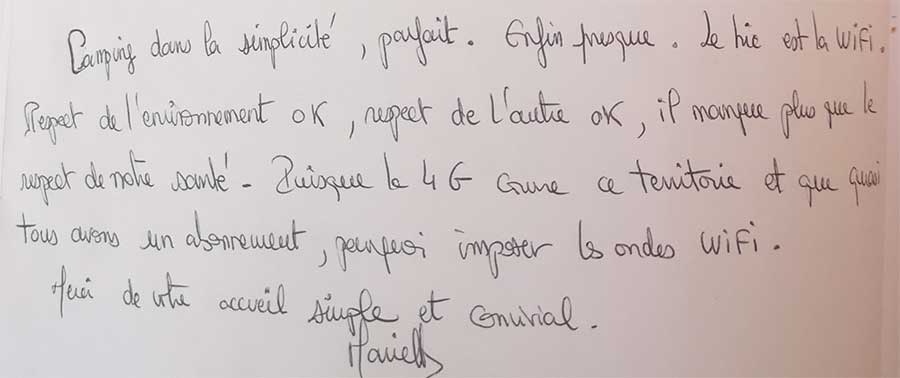 Camping dans la simplicité, parfait. Enfin presque. Le hic est la WiFi.
Respect de l'environnement OK, respect de l'autre OK, il manque plus que le
respect de notre santé - Puisque la 4G couvre ce territoire et que quasi
tous avons un abonnement, pourquoi imposer les ondes WiFi.
Merci de votre accueil simple et convivial.